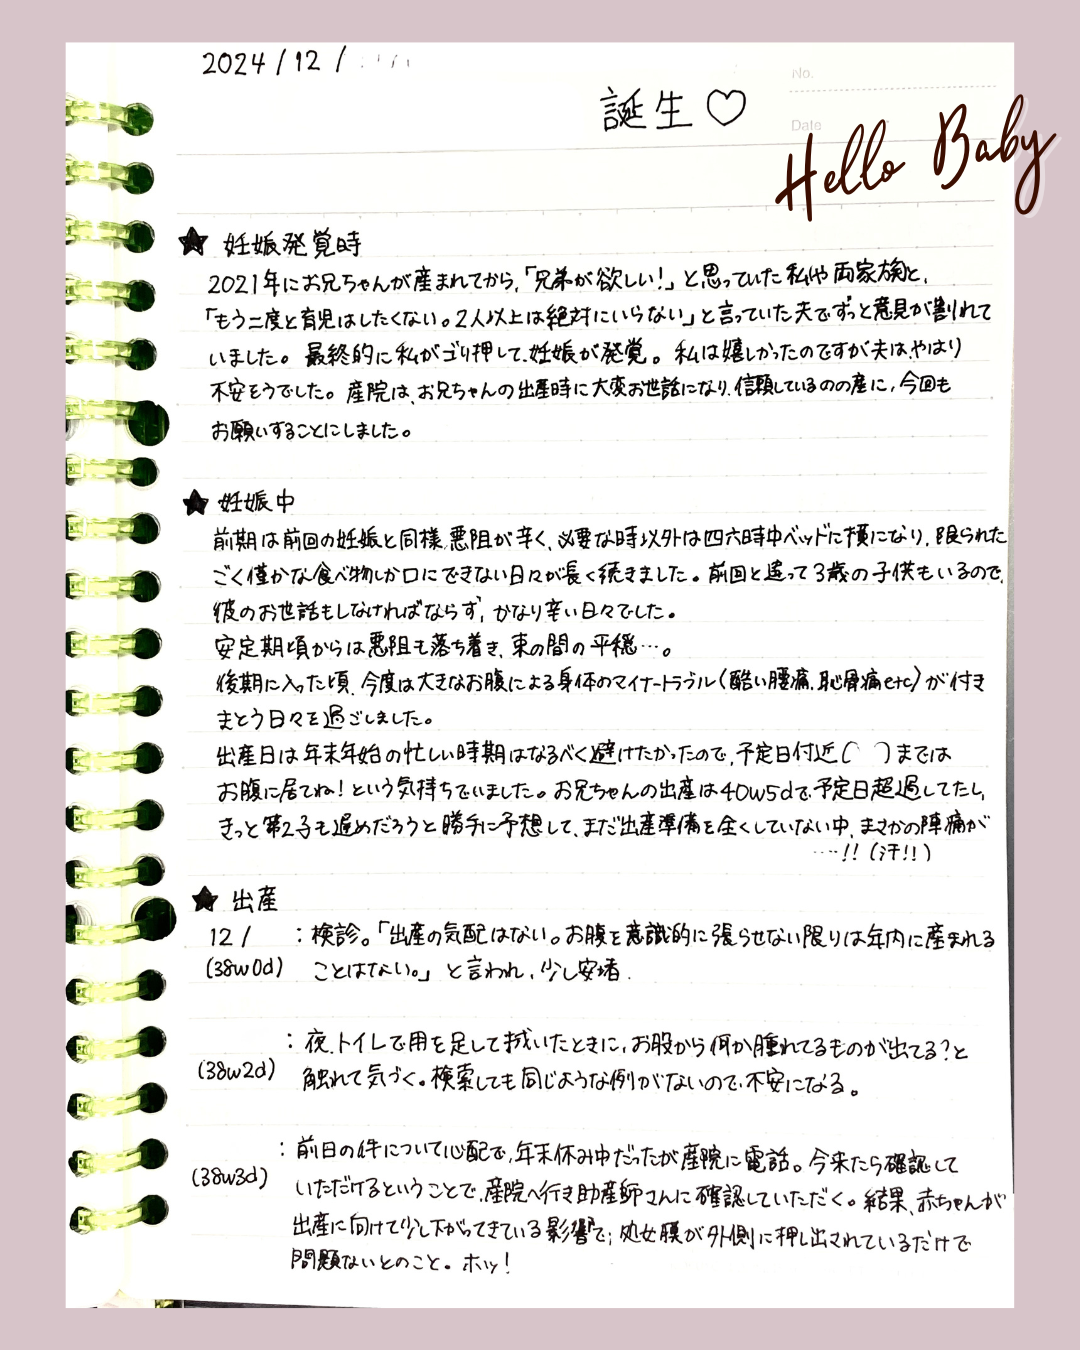 2024/12/
No.
誕生♡
Date
Hello Baby
★ 妊娠発覚時
2021年にお兄ちゃんが産まれてから,「兄弟が欲しい!」と思っていた私や両家族と,
「もう二度と育児はしたくない。2人以上は絶対にいらない」と言っていた夫でずっと意見が割れて
いました。最終的に私がゴリ押しで、妊娠が発覚。私は嬉しかったのですが夫は、やはり
不安そうでした。産院は、お兄ちゃんの出産時に大変お世話になり、信頼しているのの産に,今回も
お願いすることにしました。
★ 妊娠中
前期は前回の妊娠と同様,悪阻が辛く、必要な時以外は四六時中ベッドに横になり,限られた
ごく僅かな食べ物しか口にできない日々が長く続きました。前回と違って3歳の子供もいるので、
彼のお世話もしなければならず,かなり辛い日々でした。
安定期頃からは悪阻も落ち着き、束の間の平穏…。
後期に入った頃、今度は大きなお腹による身体のマイナートラブル(酷い腰痛、恥骨痛etc)が付き
まとう日々を過ごしました。
出産日は年末年始の忙しい時期はなるべく避けたかったので,予定日付近( )までは
お腹に居てね!という気持ちでいました。お兄ちゃんの出産は40w5dで、予定日超過してたし,
きっと第2子も遅めだろうと勝手に予想して、まだ出産準備を全くしていない中、まさかの陣痛が
…!!(汗!!)
★ 出産
12/ :検診。「出産の気配はない。お腹を意識的に張らせない限りは年内に産まれる
(38w0d) ことはない。」と言われ,少し安堵.
:夜、トイレで用を足して拭いたときに,お股から何か腫れてるものが出てる?と
(38w2d) 触れて気づく。検索しても同じような例がないので、不安になる。
:前日の件について心配で,年末休み中だったが産院に電話。今来たら確認して
(38w3d) いただけるということで、産院へ行き助産師さんに確認していただく。結果、赤ちゃんが
出産に向けて少し下がってきている影響で;処女膜が外側に押し出されているだけで
問題ないとのこと。ホッ!